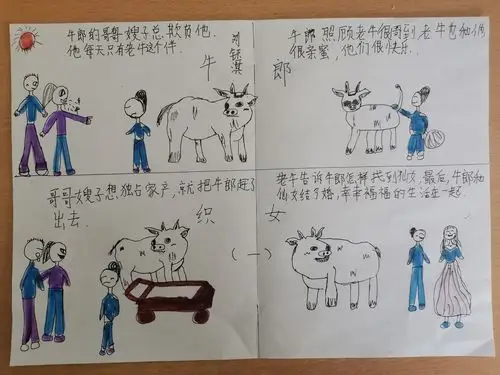 牛郎的哥哥嫂子总欺负他.
他每天只有老牛这个伴.
牛郎照顾老牛很周到老牛也和他
很亲蜜,他们很快乐.
牛
郎
哥哥嫂子想独占家产,就把牛郎赶了
出去.
老牛告诉牛郎怎样找到仙女,最后,牛郎和
仙女结了婚,幸幸福福的生活在一起.
织
女
(一)